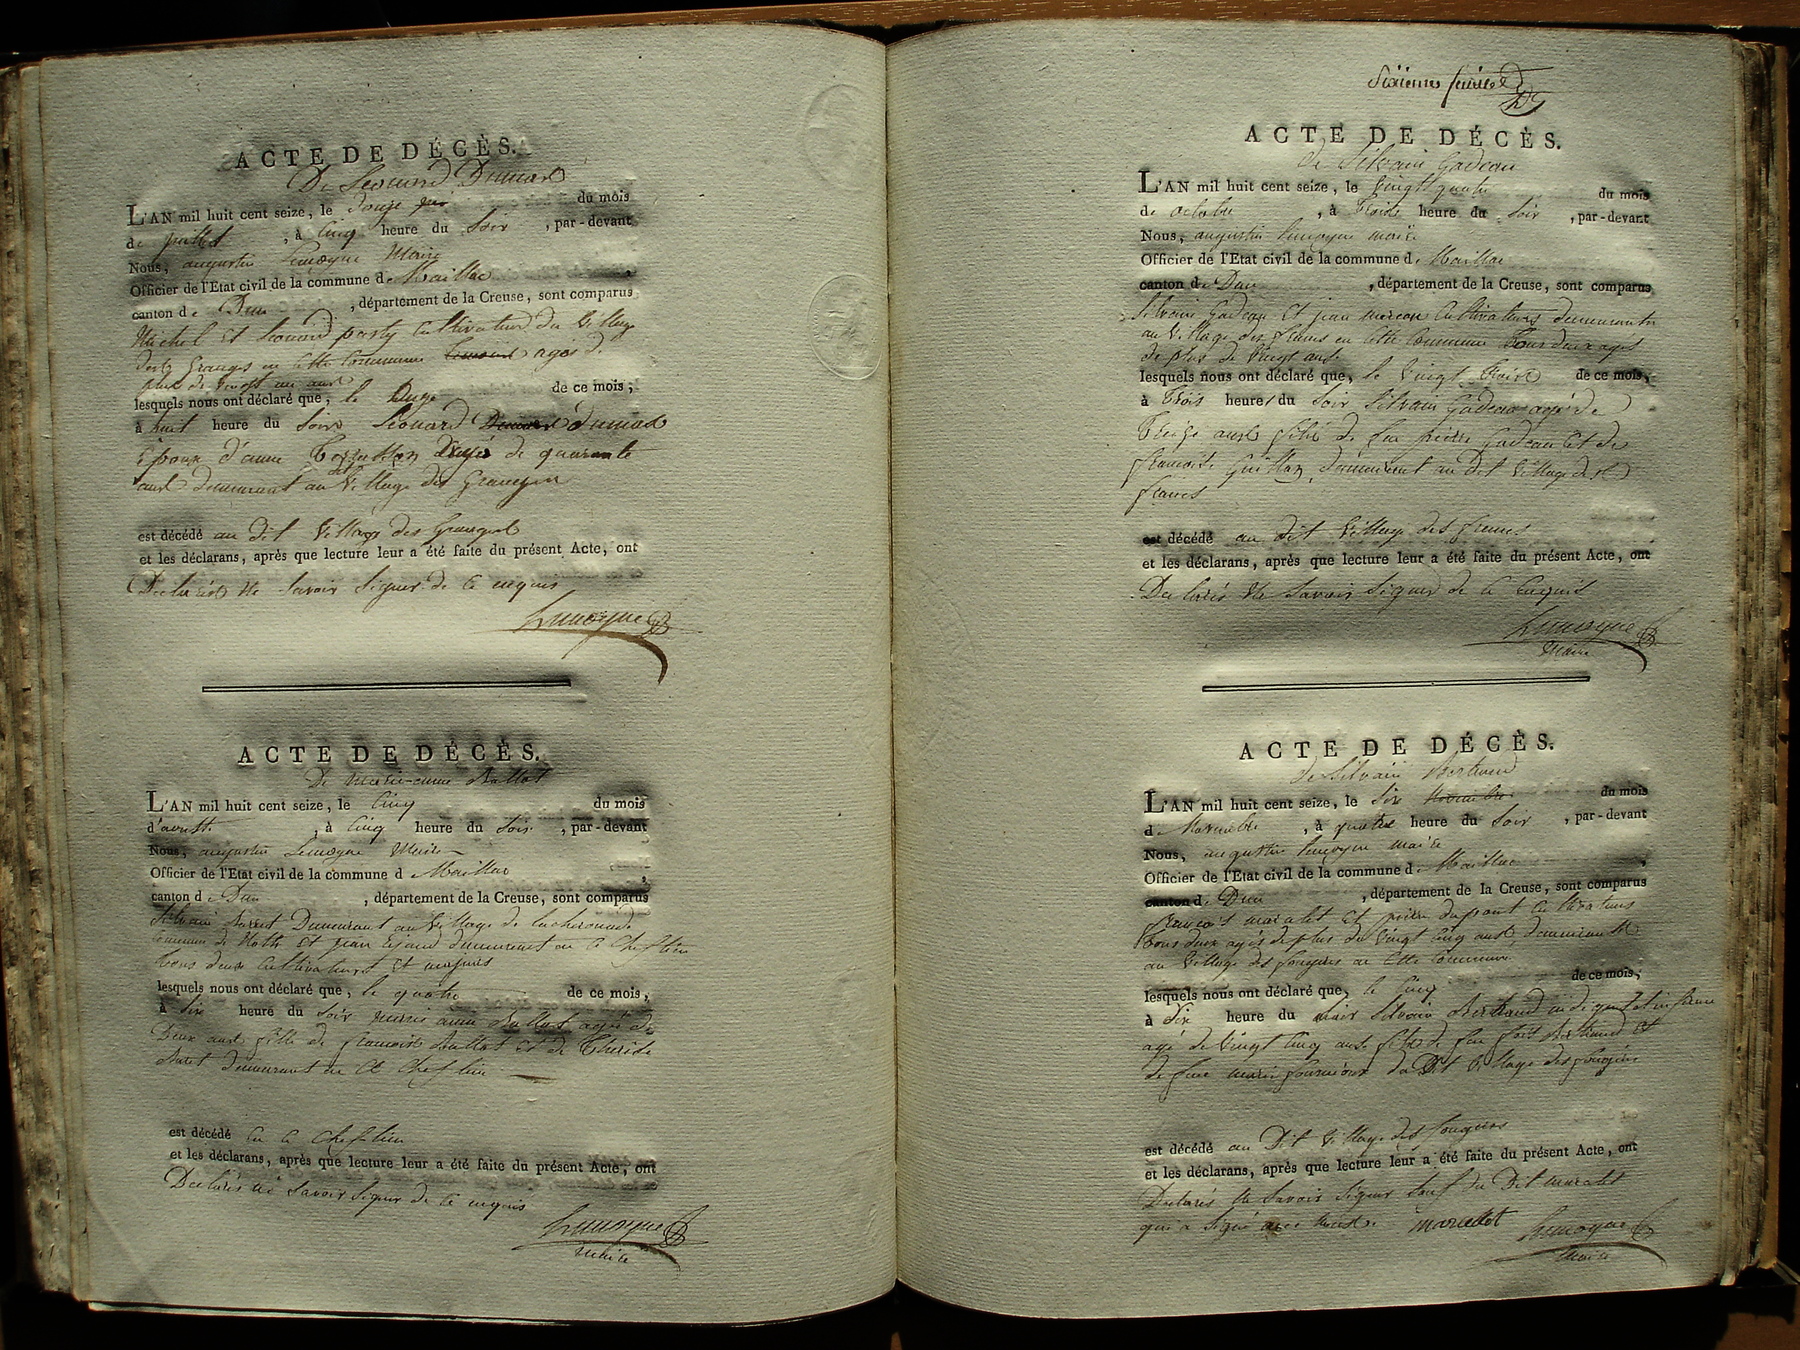 ACTE DE DÉCÈS.
De Leonard Dumas
L'AN mil huit cent seize, le douze du mois
de juillet, à cinq heure du soir, par-devant
Nous, augustin Lemoyne Maire
Officier de l'Etat civil de la commune de Maillac
canton de Dun, département de la Creuse, sont comparus
Michel et Leonard party cultivateurs du Village
des Granges en cette commune agés de
plus de vingt un ans
lesquels nous ont déclaré que, le onze de ce mois,
à huit heure du soir Léonard dumas
époux d'anne agé de quarante
ans demeurant au dit Village des Granges
est décédé au dit Village des Granges
et les déclarans, après que lecture leur a été faite du présent Acte, ont
Declarés ne Savoir Signer de ce enquis
Lemoyne
ACTE DE DÉCÈS.
De Marie-anne Ballot
L'AN mil huit cent seize, le cinq du mois
d'aoust, à cinq heure du soir, par-devant
Nous, augustin Lemoyne Maire
Officier de l'Etat civil de la commune d Maillac
canton de Dun, département de la Creuse, sont comparus
Silvain Demeurant au Village de
commune de et jean demeurant en ce Chef lieu
tous deux cultivateurs et majeurs
lesquels nous ont déclaré que, le quatre de ce mois,
à six heure du soir marie anne Ballot agée de
Deux ans fille de francois Ballot et de Therese
demeurant en ce Chef lieu
est décédé en ce Chef lieu
et les déclarans, après que lecture leur a été faite du présent Acte, ont
Declarés ne Savoir Signer de ce enquis
Lemoyne
maire
Sixieme feuille
ACTE DE DÉCÈS.
de Silvain Gadeau
L'AN mil huit cent seize, le vingt quatre du mois
de octobre, à heure du soir, par-devant
Nous, augustin Lemoyne maire
Officier de l'Etat civil de la commune de Maillac
canton de Dun, département de la Creuse, sont comparus
Silvain Gadeau et jean cultivateurs demeurants
au Village des francs en cette commune tous deux agés
de plus de vingt ans
lesquels nous ont déclaré que, le vingt trois de ce mois,
à trois heure du soir Silvain Gadeau agé de
treize ans fils de feu pierre Gadeau et de
francoise demeurant au dit Village des
francs
est décédé au dit Village des francs
et les déclarans, après que lecture leur a été faite du présent Acte, ont
Declarés ne Savoir Signer de ce enquis
Lemoyne
Maire
ACTE DE DÉCÈS.
de Silvain Bertrand
L'AN mil huit cent seize, le six novembre du mois
d Novembre, à quatre heure du soir, par-devant
Nous, augustin Lemoyne maire
Officier de l'Etat civil de la commune de Maillac
canton de Dun, département de la Creuse, sont comparus
francois maratet et pierre dupont cultivateurs
tous deux agés de plus de vingt cinq ans demeurants
au Village des fougères en cette commune
lesquels nous ont déclaré que, le cinq de ce mois,
à dix heure du soir Silvain Bertrand
agé de vingt cinq ans fils de feu Bertrand et
de feue marie du Dit Village des fougères
est décédé au Dit Village des fougères
et les déclarans, après que lecture leur a été faite du présent Acte, ont
Declarés ne Savoir Signer Sauf le Dit maratet
qui a Signé avec nous maratet Lemoyne
Maire